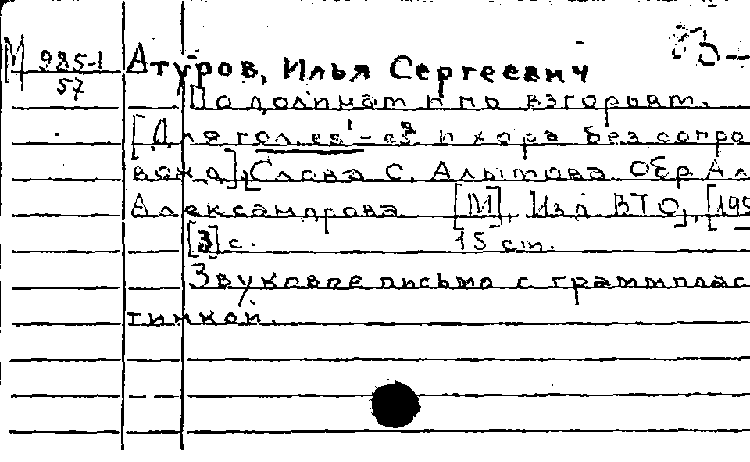 М 985-1 Атуров, Илья Сергеевич
57
По долинам и по взгорьям.
[Для гол. es¹-as² и хора без сопро
вожд.], Слова С. Алымова. Обр. Ал.
Александрова [М], Изд. ВТО, [195
[3] с. 15 см.
Звуковое письмо с граммплас
тинкой.